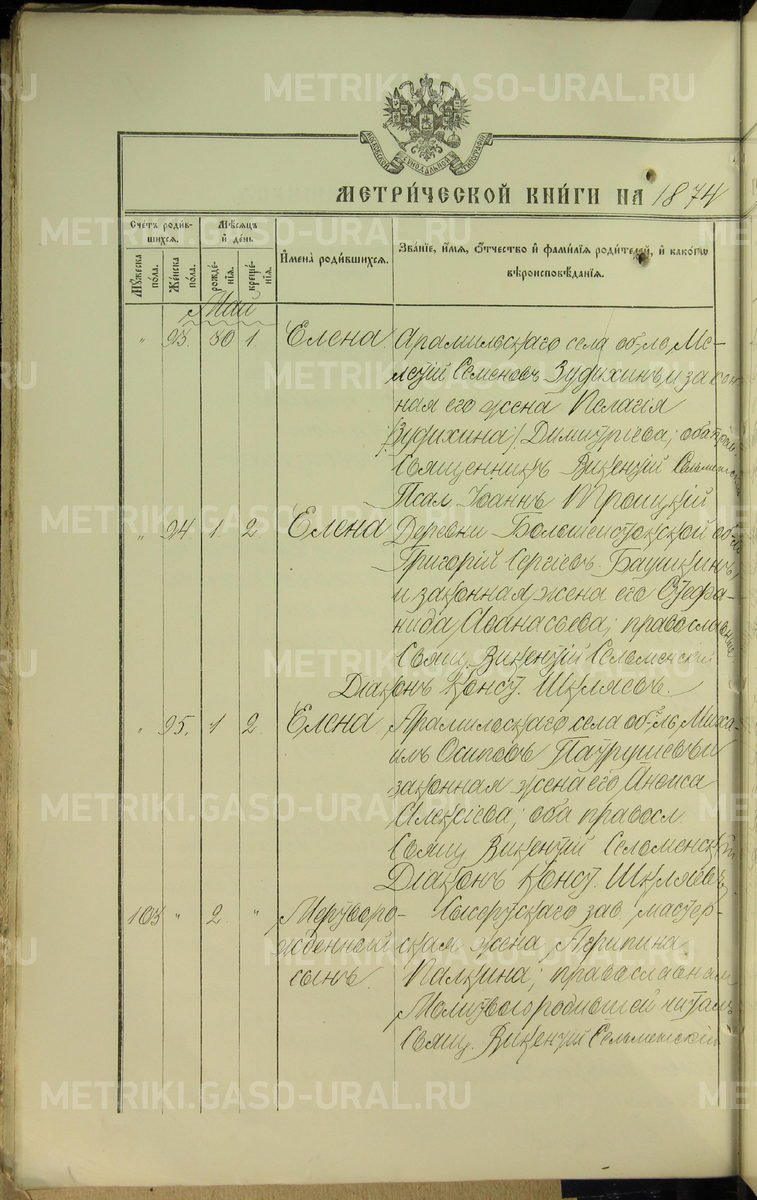 METRIKI.GASO-URAL.RU
МОСКОВСКОЙ СѴНОДАЛЬНОЙ ТИПОГРАФІИ
МЕТРИ́ЧЕСКОЙ КНИ́ГИ НА 1874
Сче́тъ роди́вшихся.
Мꙋ́жеска по́ла.
Же́нска по́ла.
Мѣ́сяцъ и҆ де́нь
рожде́нїя.
креще́нїя.
И҆мена̀ роди́вшихся.
Зва́нїе, и҆́мя, ѻ҆́тчество и҆ фами́лїя роди́телей, и҆ како́гѡ вѣроисповѣ́данїя.
Май
" 93. 30 1 Елена. Арамильскаго села об-ль Ме-
летій Семеновъ Зудихинъ и закон-
ная его жена Пелагія
/Зудихина/ Димитріева; оба прав.
Священникъ Викентій Сельменскій
Псал. Іоаннъ Троицкій
" 94 1 2 Елена Деревни Большеистокской об-ль
Григорій Сергіевъ Баушкинъ
и законная жена его Стефа-
нида Аѳанасьева; православные
Свящ. Викентій Сельменскій
Діаконъ Конст. Шкляевъ.
" 95. 1 2 Елена Арамильскаго села об-ль Миха-
илъ Осиповъ Патрушевъ и
законная жена его Анфиса
Алексіева; оба правосл
Свящ Викентій Селоменскій
Діаконъ Конст. Шкляевъ
103 " 2 " Мертворо- Сысертскаго зав. мастер-
жденный ская жена Агрипина
сынъ. Палкина; православная
Молитвы родившей читалъ
Свящ. Викентій Сельменскій